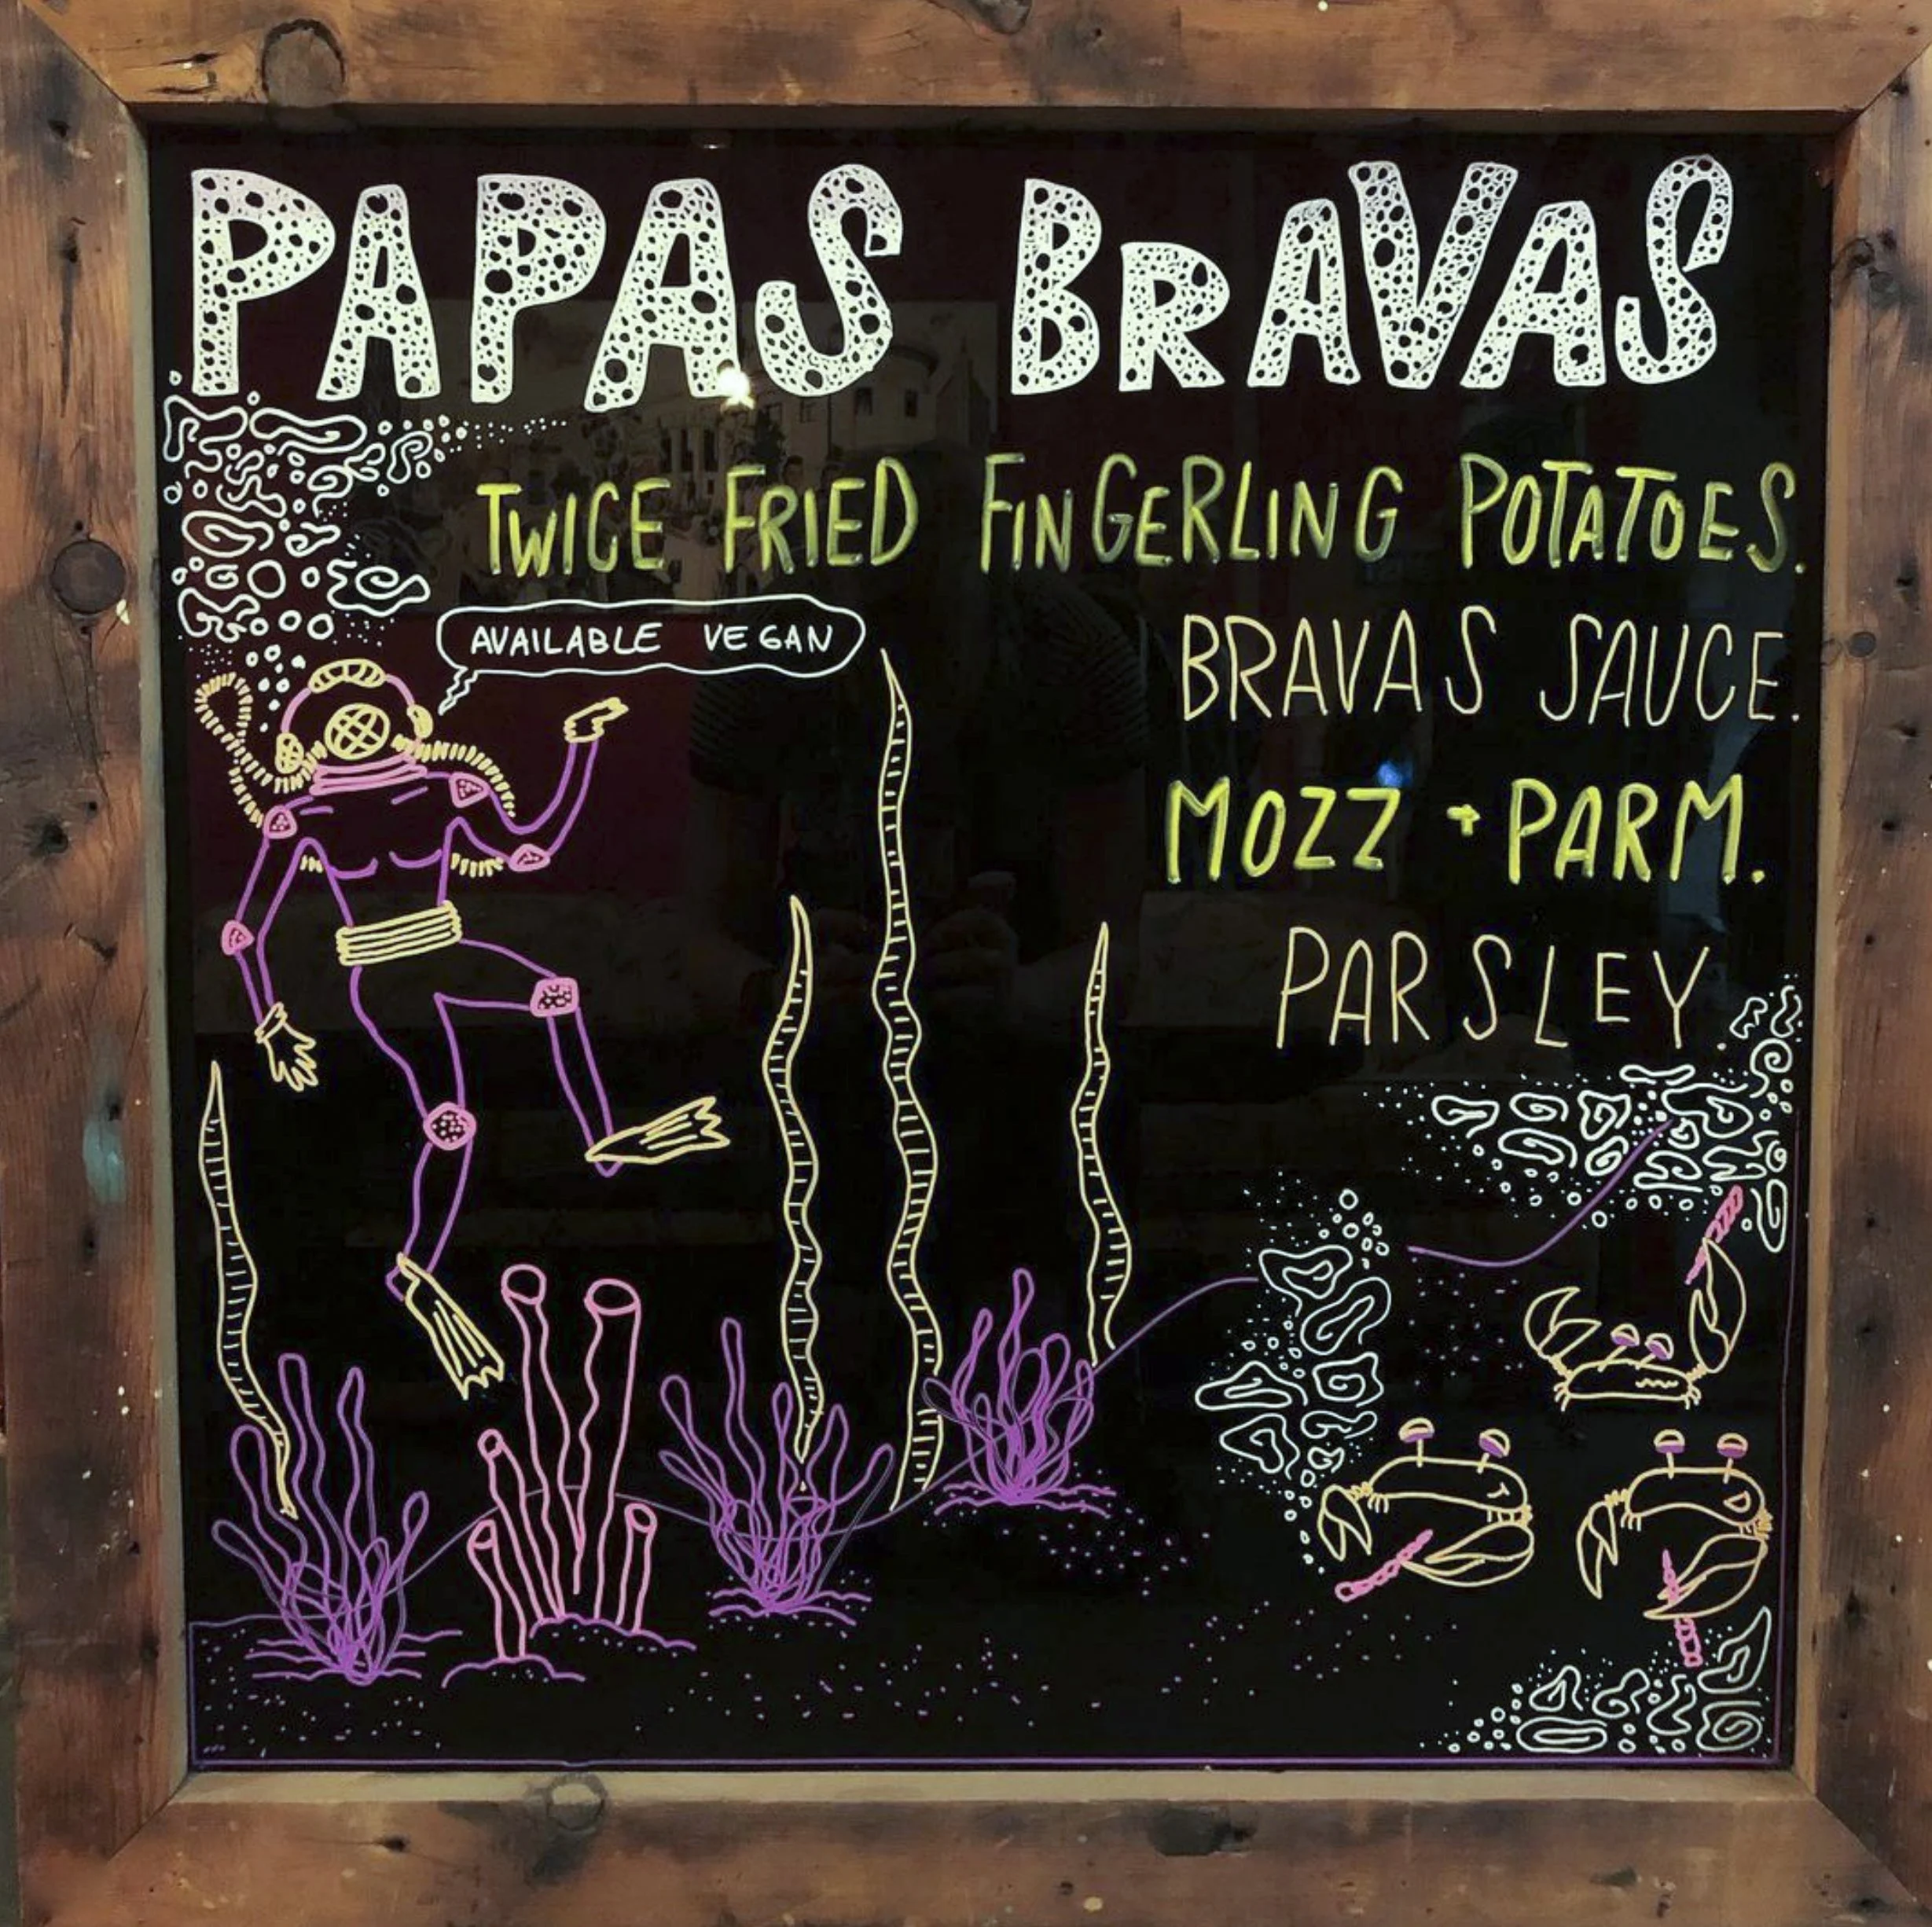 PAPAS BRAVAS
TWICE FRIED FINGERLING POTATOES.
AVAILABLE VEGAN
BRAVAS SAUCE.
MOZZ + PARM.
PARSLEY